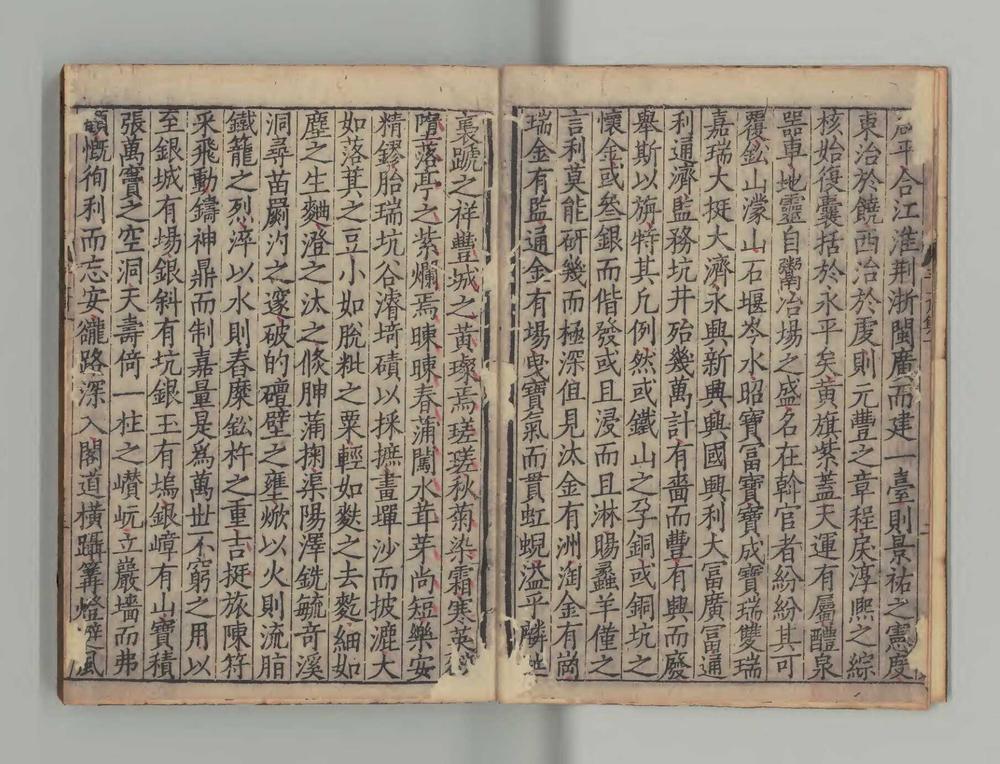 咸平合江淮荆浙閩廣而建一臺則景祐之憲度
東治於饒西治於虔則元豐之章程戾淳熙之綜
核始復囊括於永平矣黄旗紫蓋天運有屬醴泉
器車地靈自鬻冶場之盛名在斡官者紛紛其可
覆鈆山濛山石堰岑水昭寶冨寶寶成寶瑞雙瑞
嘉瑞大挺大濟永興新興興國興利大冨廣冨通
利通濟監務坑井殆幾萬計有嗇而豐有興而廢
舉斯以旃特其凢例然或鐵山之孕銅或銅坑之
懷金或叅銀而偕發或且浸而且淋賜蠡羊僅之
言利莫能研幾而極深伹見汰金有洲淘金有崗
瑞金有監通金有場曳寶氣而貫虹蜺溢乎麟
裹蹏之祥豐城之黄璨焉瑳瑳秋菊染霜寒英
墮落亭之紫爛焉暕暕春蒲闖水茸芽尚短樂安
精鏐胎瑞坑谷濬埼磧以採摭畫墠沙而披漉大
如落萁之豆小如脫粃之粟輕如麩之去麧細如
塵之生麯澄之汰之倏胂蒲掬渠陽澤銑毓奇溪
洞尋苗罽汋之邃破的礓壁之壅焮以火則流脂
鐵籠之烈淬以水則舂糜鈆杵之重吉挺旅陳符
采飛動鑄神鼎而制嘉量是爲萬世不窮之用以
至銀城有場銀斜有坑銀玉有塢銀嶂有山寶積
張萬寶之空洞天壽倚一柱之巑岏立巖墻而弗
慨徇利而忘安巃路深入閣道橫躡篝燈避風